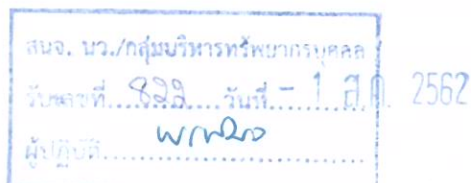 สนจ. นว./กลุ่มบริหารทรัพยากรบุคคล
รับเลขที่....822.....วันที่ - 1 ส.ค. 2562
ผู้ปฏิบัติ...............